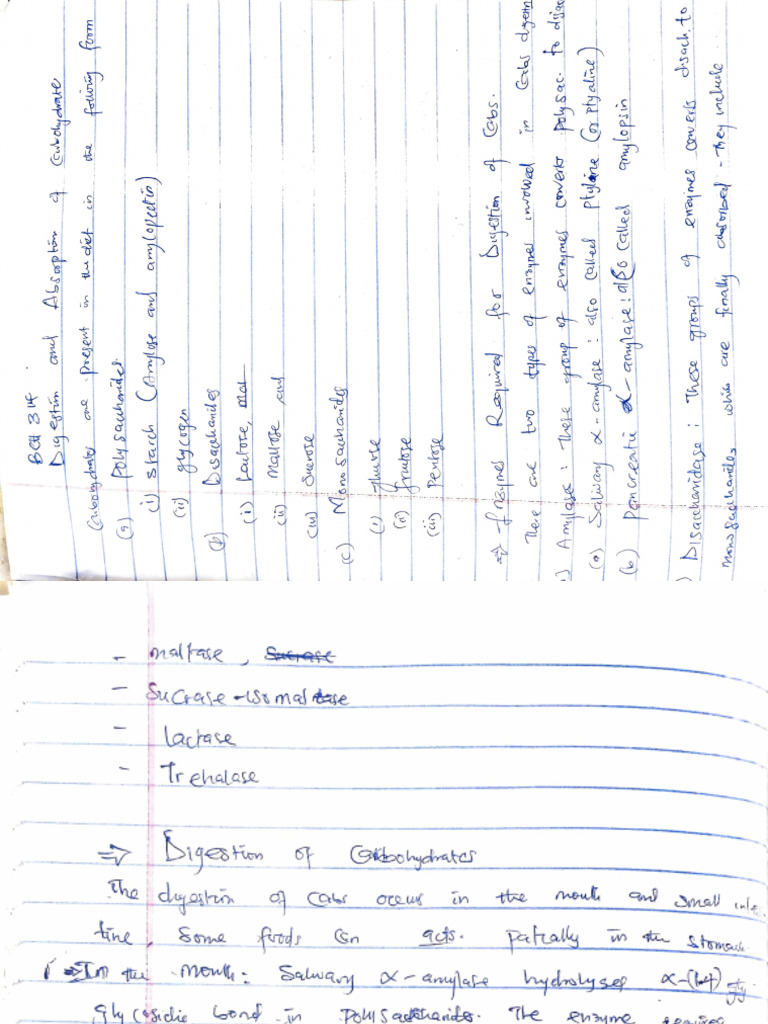 BCH 314
Digestion and Absorption of Carbohydrate
Carbohydrates are present in the diet in the following form
(a) Polysaccharides
(i) Starch (Amylose and amylopectin)
(ii) glycogen
(b) Disaccharides
(i) Lactose,
(ii) Maltose and
(iii) Sucrose
(c) Monosaccharides
(i)
(ii) fructose
(iii) Pentose
⇒ Enzymes Required for Digestion of Cabs.
There are two types of enzymes involved in Cabs
) Amylase: These group of enzymes convert polysac. to
(a) Salivary α-amylase: also called (or ptyaline)
(b) Pancreatic α-amylase: also called amylopsin
) Disaccharidase: These groups of enzymes converts disach. to
monosaccharides which are finally absorbed - They include
- maltase, Sucrase
- Sucrase-isomaltase
- Lactase
- Trehalase
⇒ Digestion of Carbohydrates
The digestion of Cabs occurs in the mouth and small
tine, Some foods can acts. in the stomach
In the mouth: Salivary α-amylase hydrolyses α-(1→4)
glycosidic bond in polysaccharides. The enzyme requires